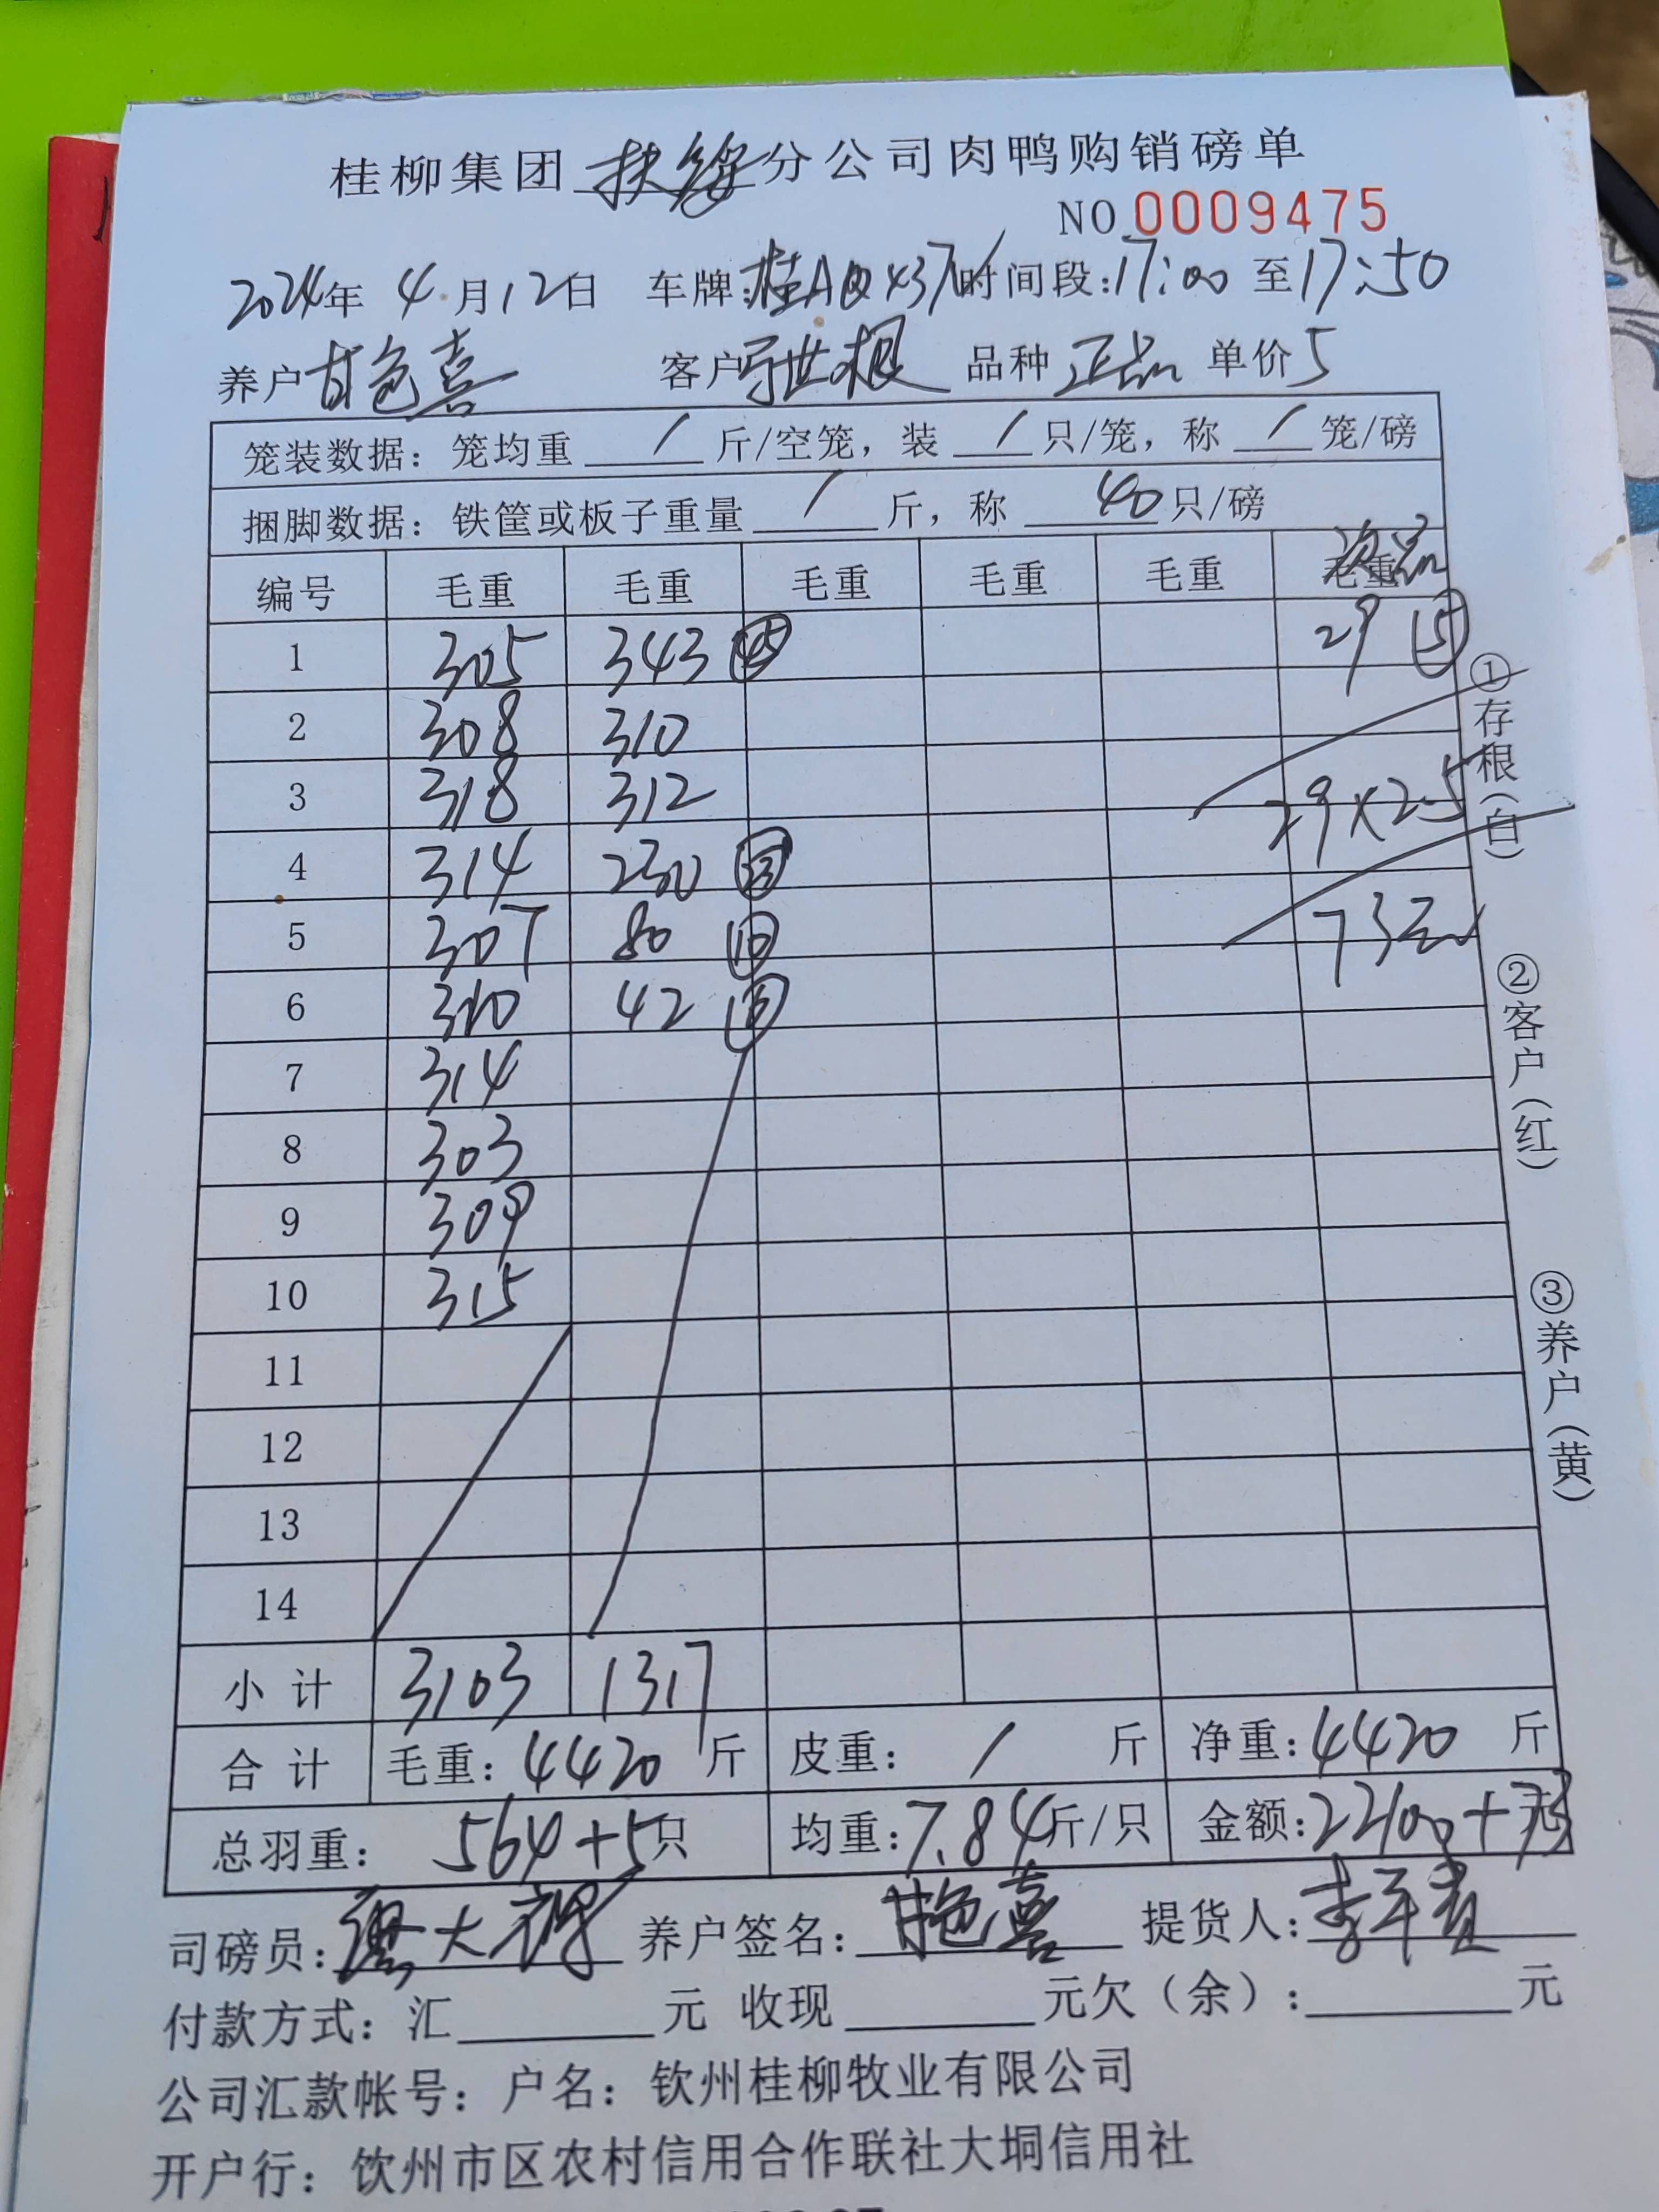 桂柳集团扶绥分公司肉鸭购销磅单
NO 0009475
2024年 4月12日 车牌:桂A 时间段:17:00 至17:50
养户甘色喜 客户 世根 品种 正品 单价5
笼装数据:笼均重 / 斤/空笼,装 / 只/笼,称 / 笼/磅
捆脚数据:铁筐或板子重量 / 斤,称 40 只/磅
编号 毛重 毛重 毛重 毛重 毛重 毛重 次品
1 305 343 29 ⑤
2 308 310
3 318 312 29×2.5
4 314 230
5 307 80 ⑩ 73元
6 310 42
7 314
8 303
9 309
10 315
11
12
13
14
小计 3103 1317
合计 毛重:4420 斤 皮重: / 斤 净重:4420 斤
总羽重: 564+5只 均重:7.84斤/只 金额:22100+73元
司磅员: 大 养户签名:甘色喜 提货人:李
付款方式:汇 元 收现 元欠(余): 元
公司汇款帐号:户名:钦州桂柳牧业有限公司
开户行:钦州市区农村信用合作联社大垌信用社
①存根(白)
②客户(红)
③养户(黄)